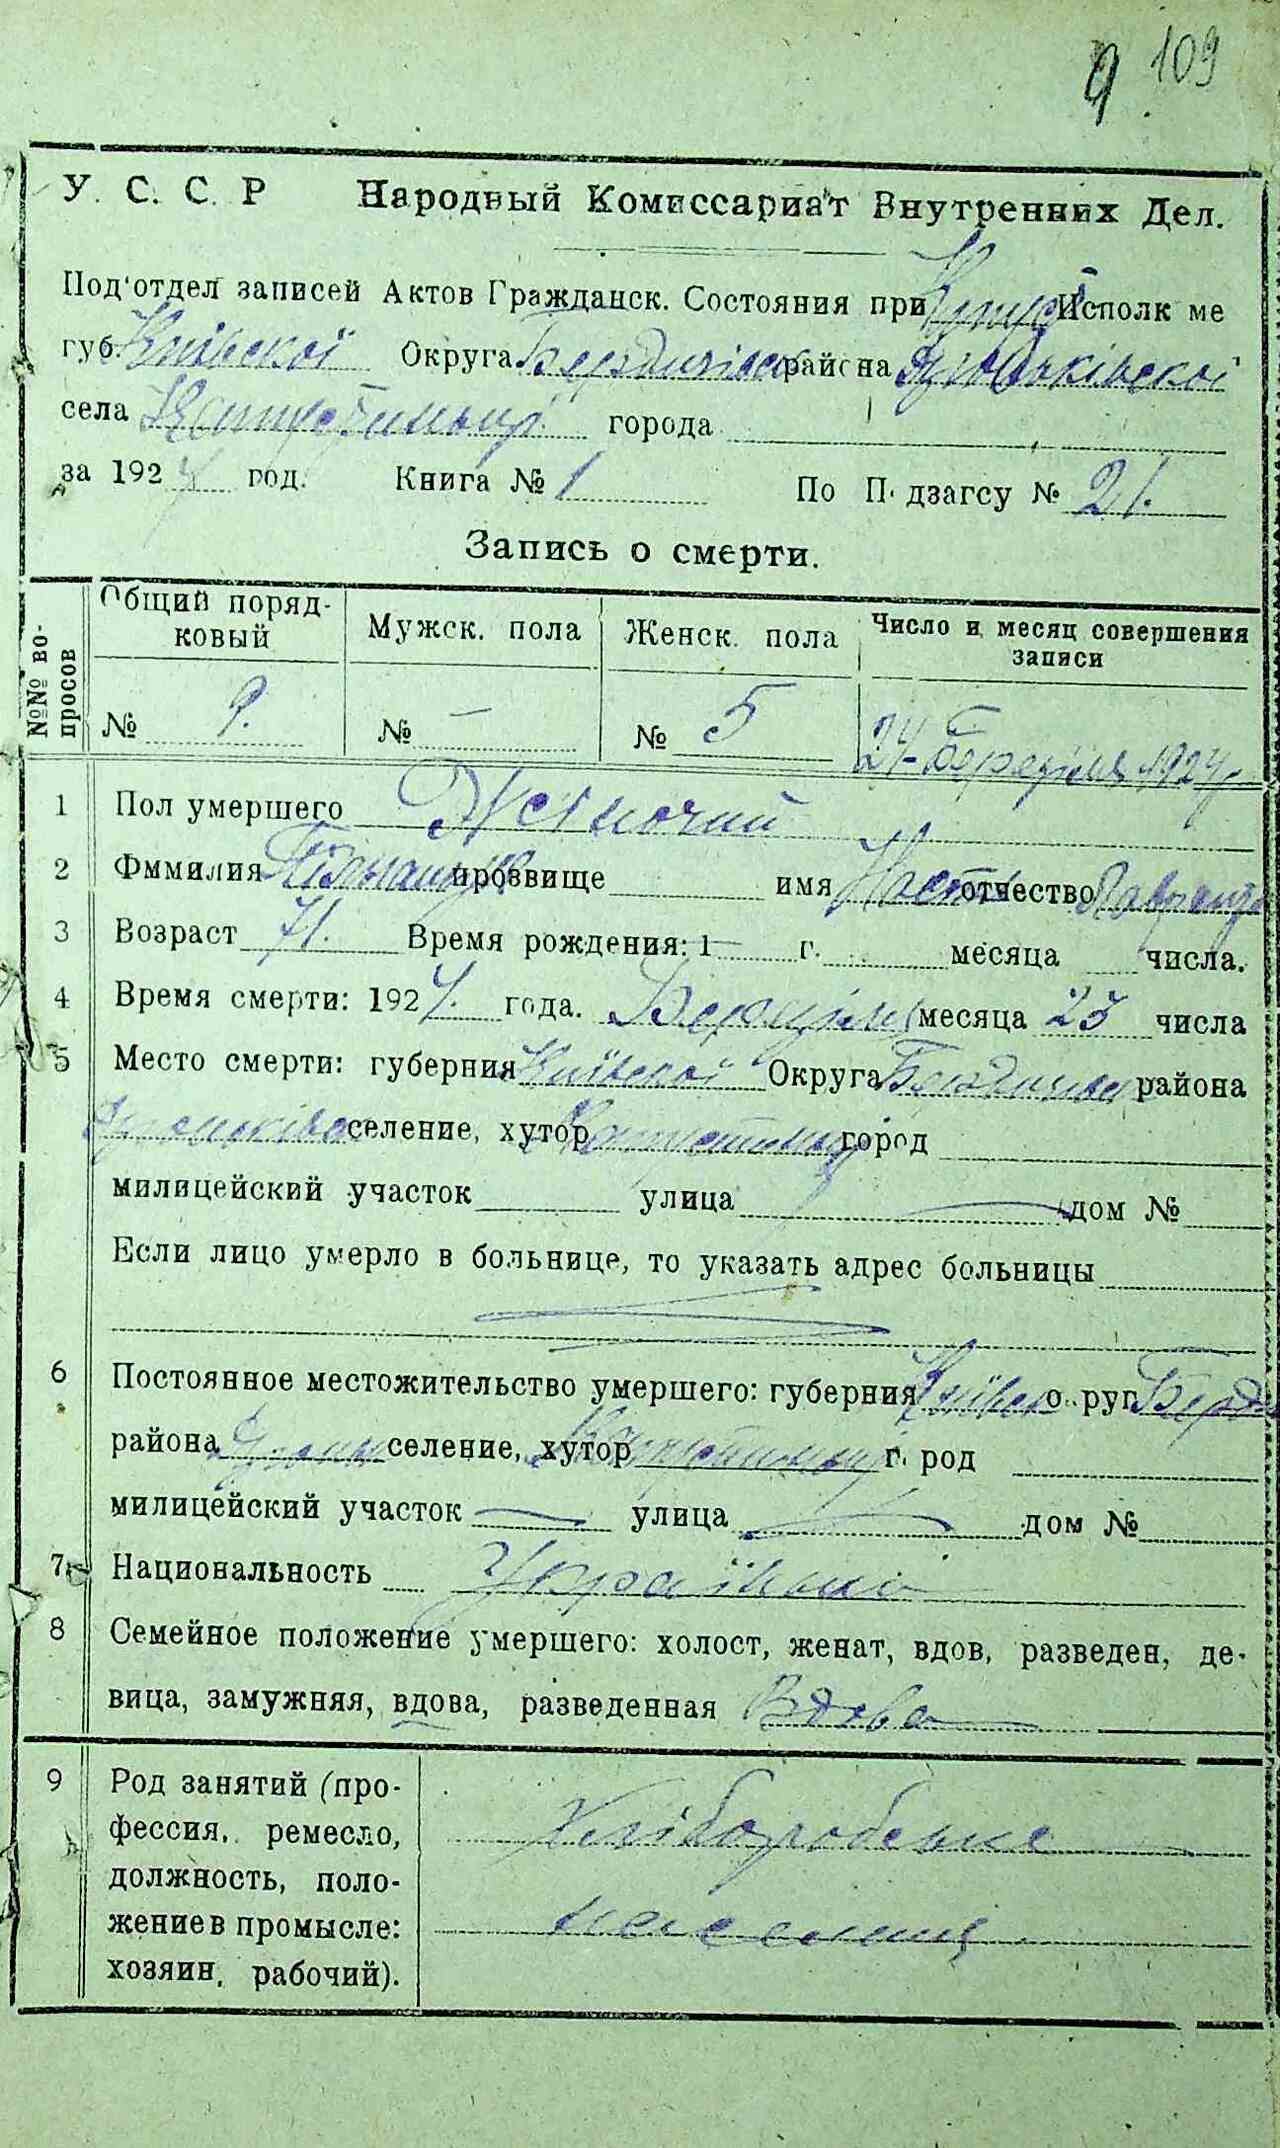 9 109
У. С. С. Р Народный Комиссариат Внутренних Дел.
Под'отдел записей Актов Гражданск. Состояния при Исполк ме
губ. Київської Округа Бердичівськ района
села города
за 1924 год. Книга № 1 По П дзагсу № 21.
Запись о смерти.
№№ во-
просов
Общий поряд-
ковый
Мужск. пола
Женск. пола
Число и месяц совершения
записи
№ 9. № — № 5 24 Березіля 1924 р
1 Пол умершего Жіночий
2 Фммилия прозвище имя Настя отчество
3 Возраст 71. Время рождения: 1 г. месяца числа.
4 Время смерти: 1924. года. Березіля месяца 23 числа
5 Место смерти: губерния Київської Округа района
селение, хутор город
милицейский участок улица дом №
Если лицо умерло в больнице, то указать адрес больницы
6 Постоянное местожительство умершего: губерния о руг Берд
района селение, хутор г род
милицейский участок улица дом №
7 Национальность Українка
8 Семейное положение умершего: холост, женат, вдов, разведен, де-
вица, замужняя, вдова, разведенная Вдова
9 Род занятий (про-
фессия, ремесло,
должность, поло-
жение в промысле:
хозяин, рабочий).
Хліборобське
населення